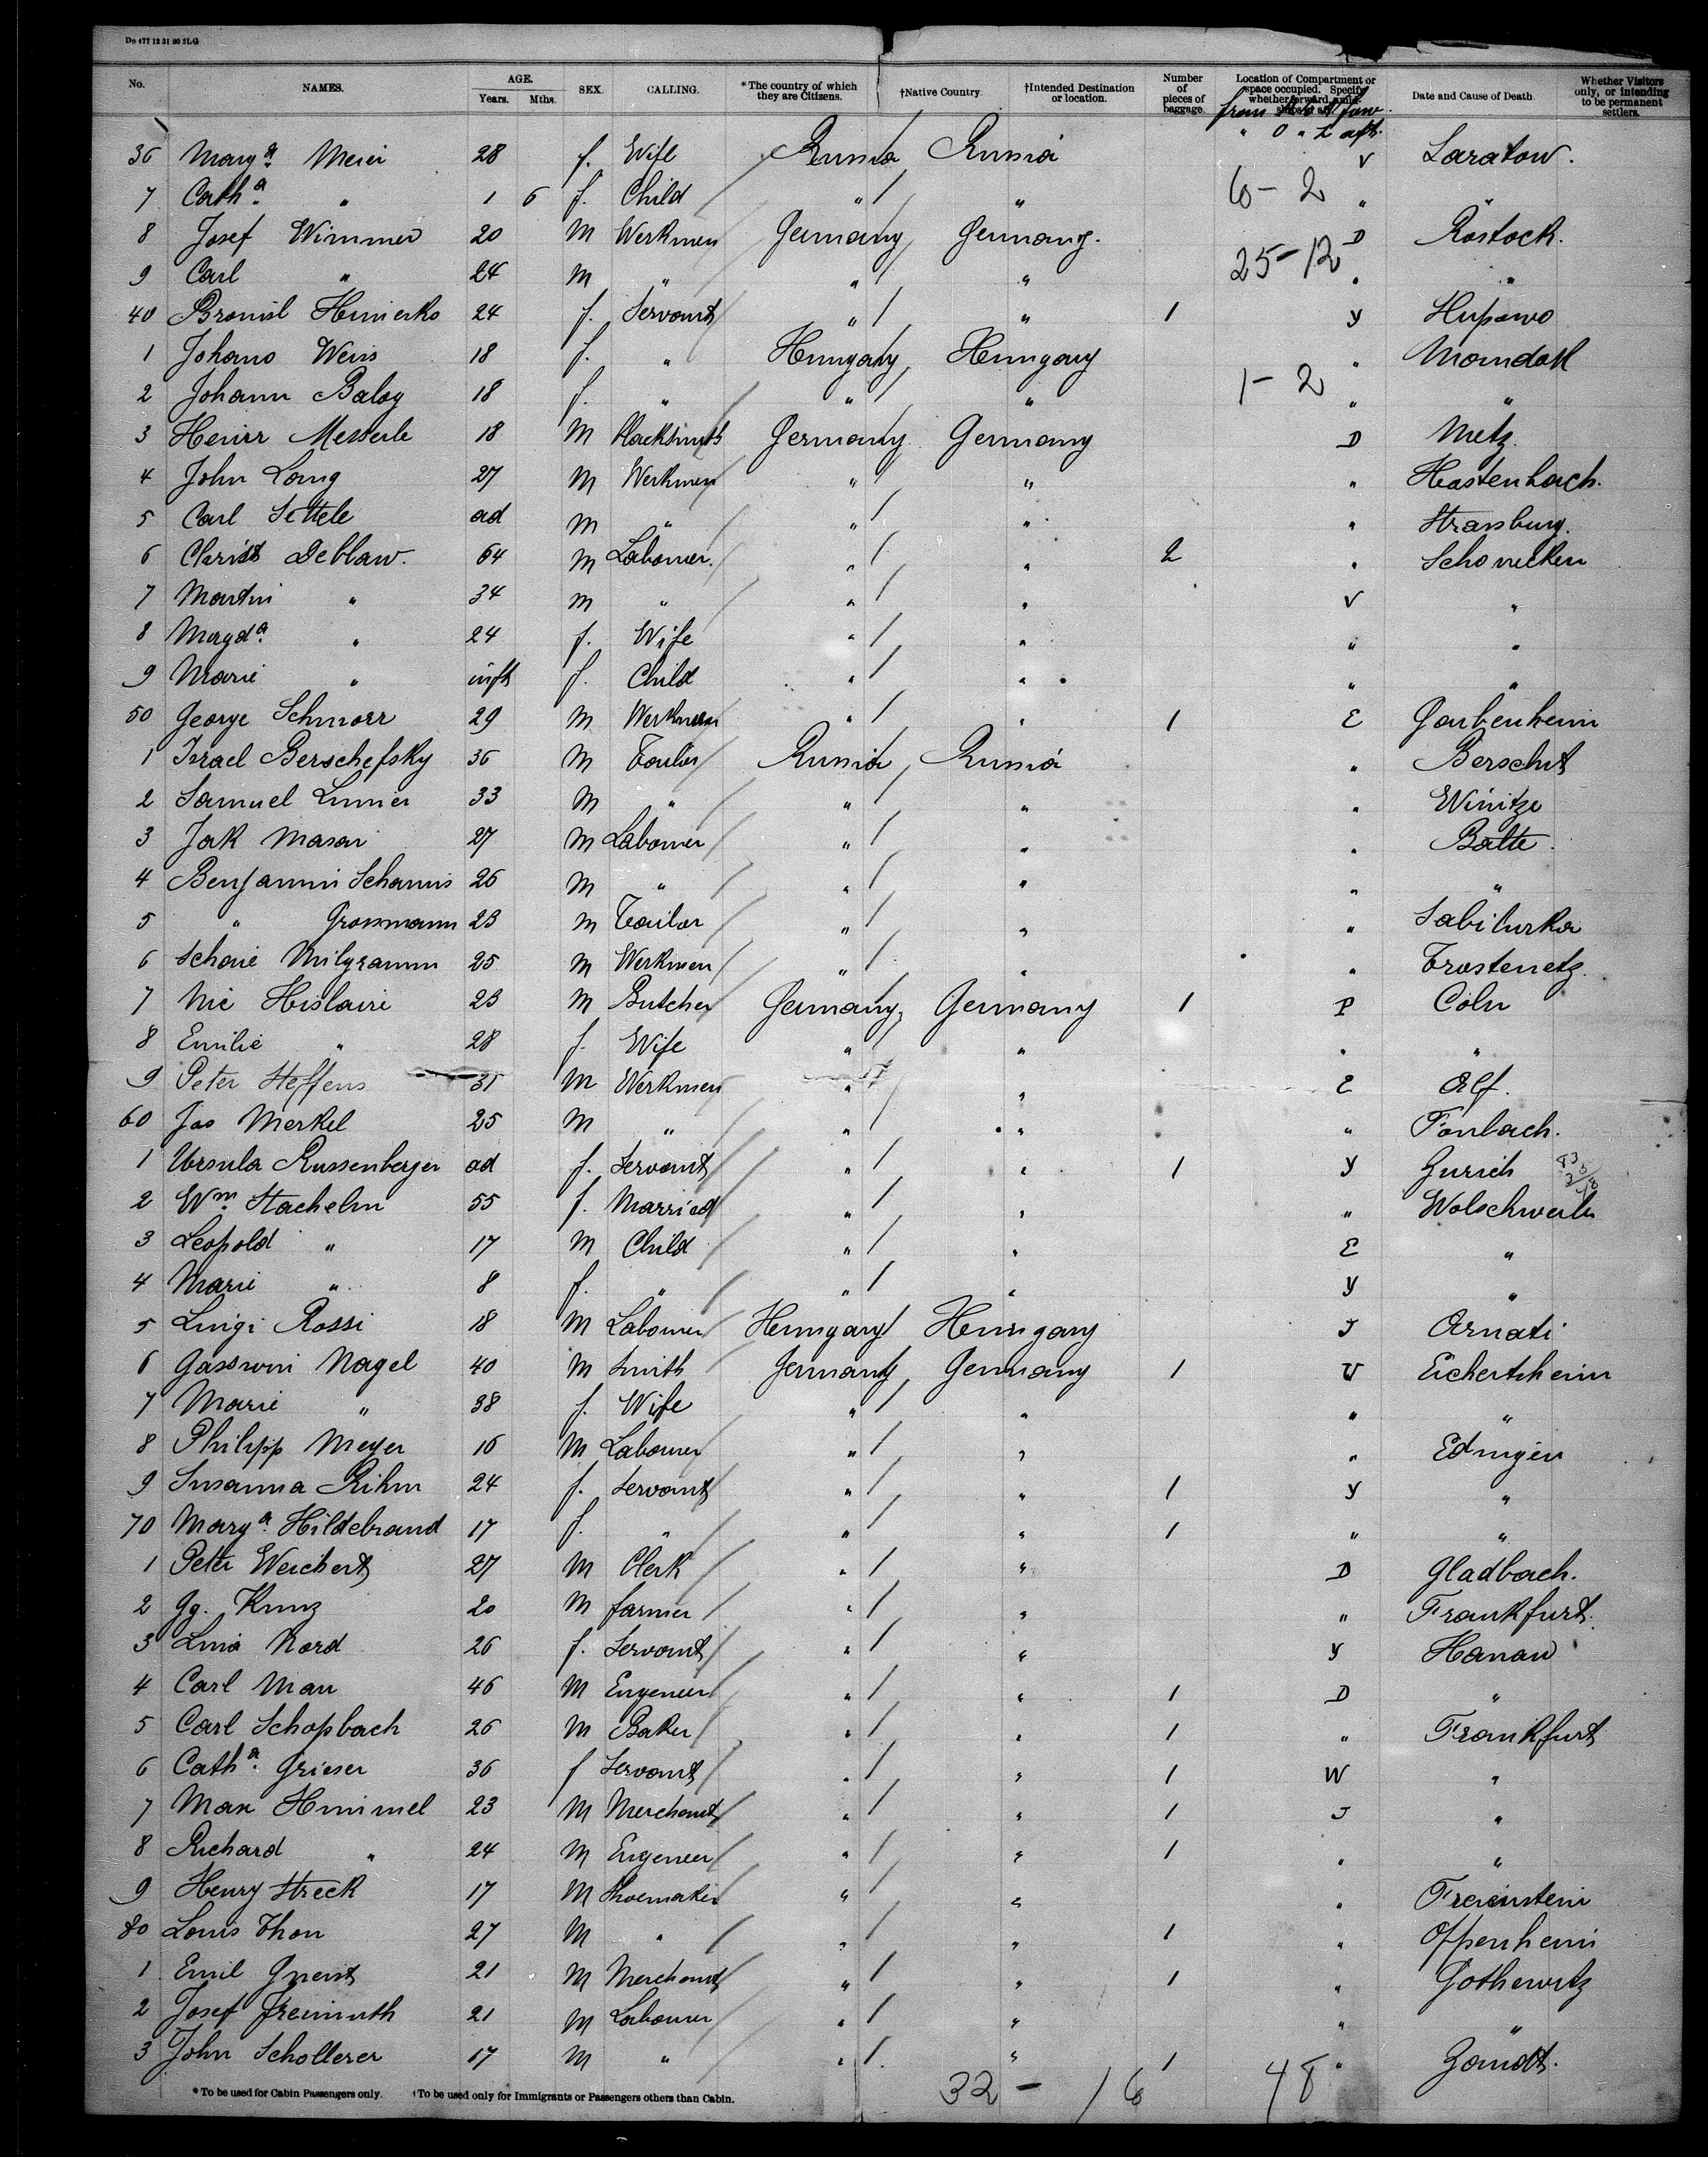 Do 477 12 31 90 2LG
No. NAMES. AGE. Years. Mths. SEX. CALLING. *The country of which they are Citizens. †Native Country. †Intended Destination or location. Number of pieces of baggage. Location of Compartment or space occupied. Specify whether forward, Date and Cause of Death. Whether Visitors only, or intending to be permanent settlers.
from
" O " Z aft.
36 Marga. Meier 28 f. Wife Russia Russia V Saratow.
7 Catha. " 1 6 f. Child " " 6 - 2 " "
8 Josef Wimmer 20 M Werkmen Germany Germany. D Rostock.
9 Carl " 24 M " " " 25 - 12 " "
40 24 f. Servant " " 1 y Hupowo
1 Johano Weiss 18 f. " Hungary Hungary "
2 Johann Balog 18 f. " " " 1 - 2 " "
3 Messerle 18 M Blacksmith Germany Germany D Metz.
4 John Lang 27 M Werkmen " " " Hostenbach.
5 Carl Settele ad M " " " " Strassburg.
6 Christ Deblaw. 64 M Labourer. " " 2 " Schonecken
7 Martin " 34 M " " " V "
8 Magda. " 24 f. Wife " " " "
9 Marie " inft f. Child " " " "
50 George Schnorr 29 M Werkmen " " 1 E Gaubenheim
1 Israel Berschefsky 36 M Tailor Russia Russia " Berschet
2 Samuel 33 M " " " " Winitze
3 Jak Masar 27 M Labourer " " " Balte.
4 Benjamin Schamis 26 M " " " " "
5 " Grossmann 23 M Tailor " " "
6 Schaie Milgramm 25 M Werkmen " " " Trostenetz.
7 Nic Hislaire 23 M Butcher Germany Germany 1 P Cöln
8 Emilie " 28 f. Wife " " " "
9 Peter Steffens 31 M Werkmen " " E Alf.
60 Jos Merkel 25 M " " " "
1 Ursula Russenberger ad f. Servant " " 1 y Zurich
2 Wm. Stachelin 55 f. Married " " "
3 Leopold " 17 M Child " " E "
4 Marie " 8 f. " " " y "
5 Luigi Rossi 18 M Labourer Hungary Hungary J Arnati
6 Nagel 40 M Smith Germany Germany 1 V Eichertsheim
7 Marie " 38 f. Wife " " " "
8 Philipp Meyer 16 M Labourer " " " Edingen
9 Susanna Rihm 24 f. Servant " " 1 y "
70 Marga. Hildebrand 17 f. " " " 1 " "
1 Peter Weichert 27 M Clerk " " D Gladbach.
2 Gg. Kunz 20 M farmer " " " Frankfurt.
3 Lina Nord 26 f. Servant " " y Hanau
4 Carl Mau 46 M Engeneer " " 1 D "
5 Carl Schopbach 26 M Baker " " 1 " Frankfurt
6 Catha. Grieser 36 f Servant " " 1 W "
7 Max Himmel 23 M Merchant " " 1 J "
8 Richard " 24 M Engeneer " " 1 " "
9 Henry Streck 17 M Shoemaker " " " Freienstein
80 Louis Thon 27 M " " " 1 " Oppenheim
1 Emil Gneist 21 M Merchant " " 1 " Gothewitz
2 Josef Freimuth 21 M Labourer " " " "
3 John Schollerer 17 M " " " 1 " Zandt.
32 - 16 48
*To be used for Cabin Passengers only. †To be used only for Immigrants or Passengers others than Cabin.